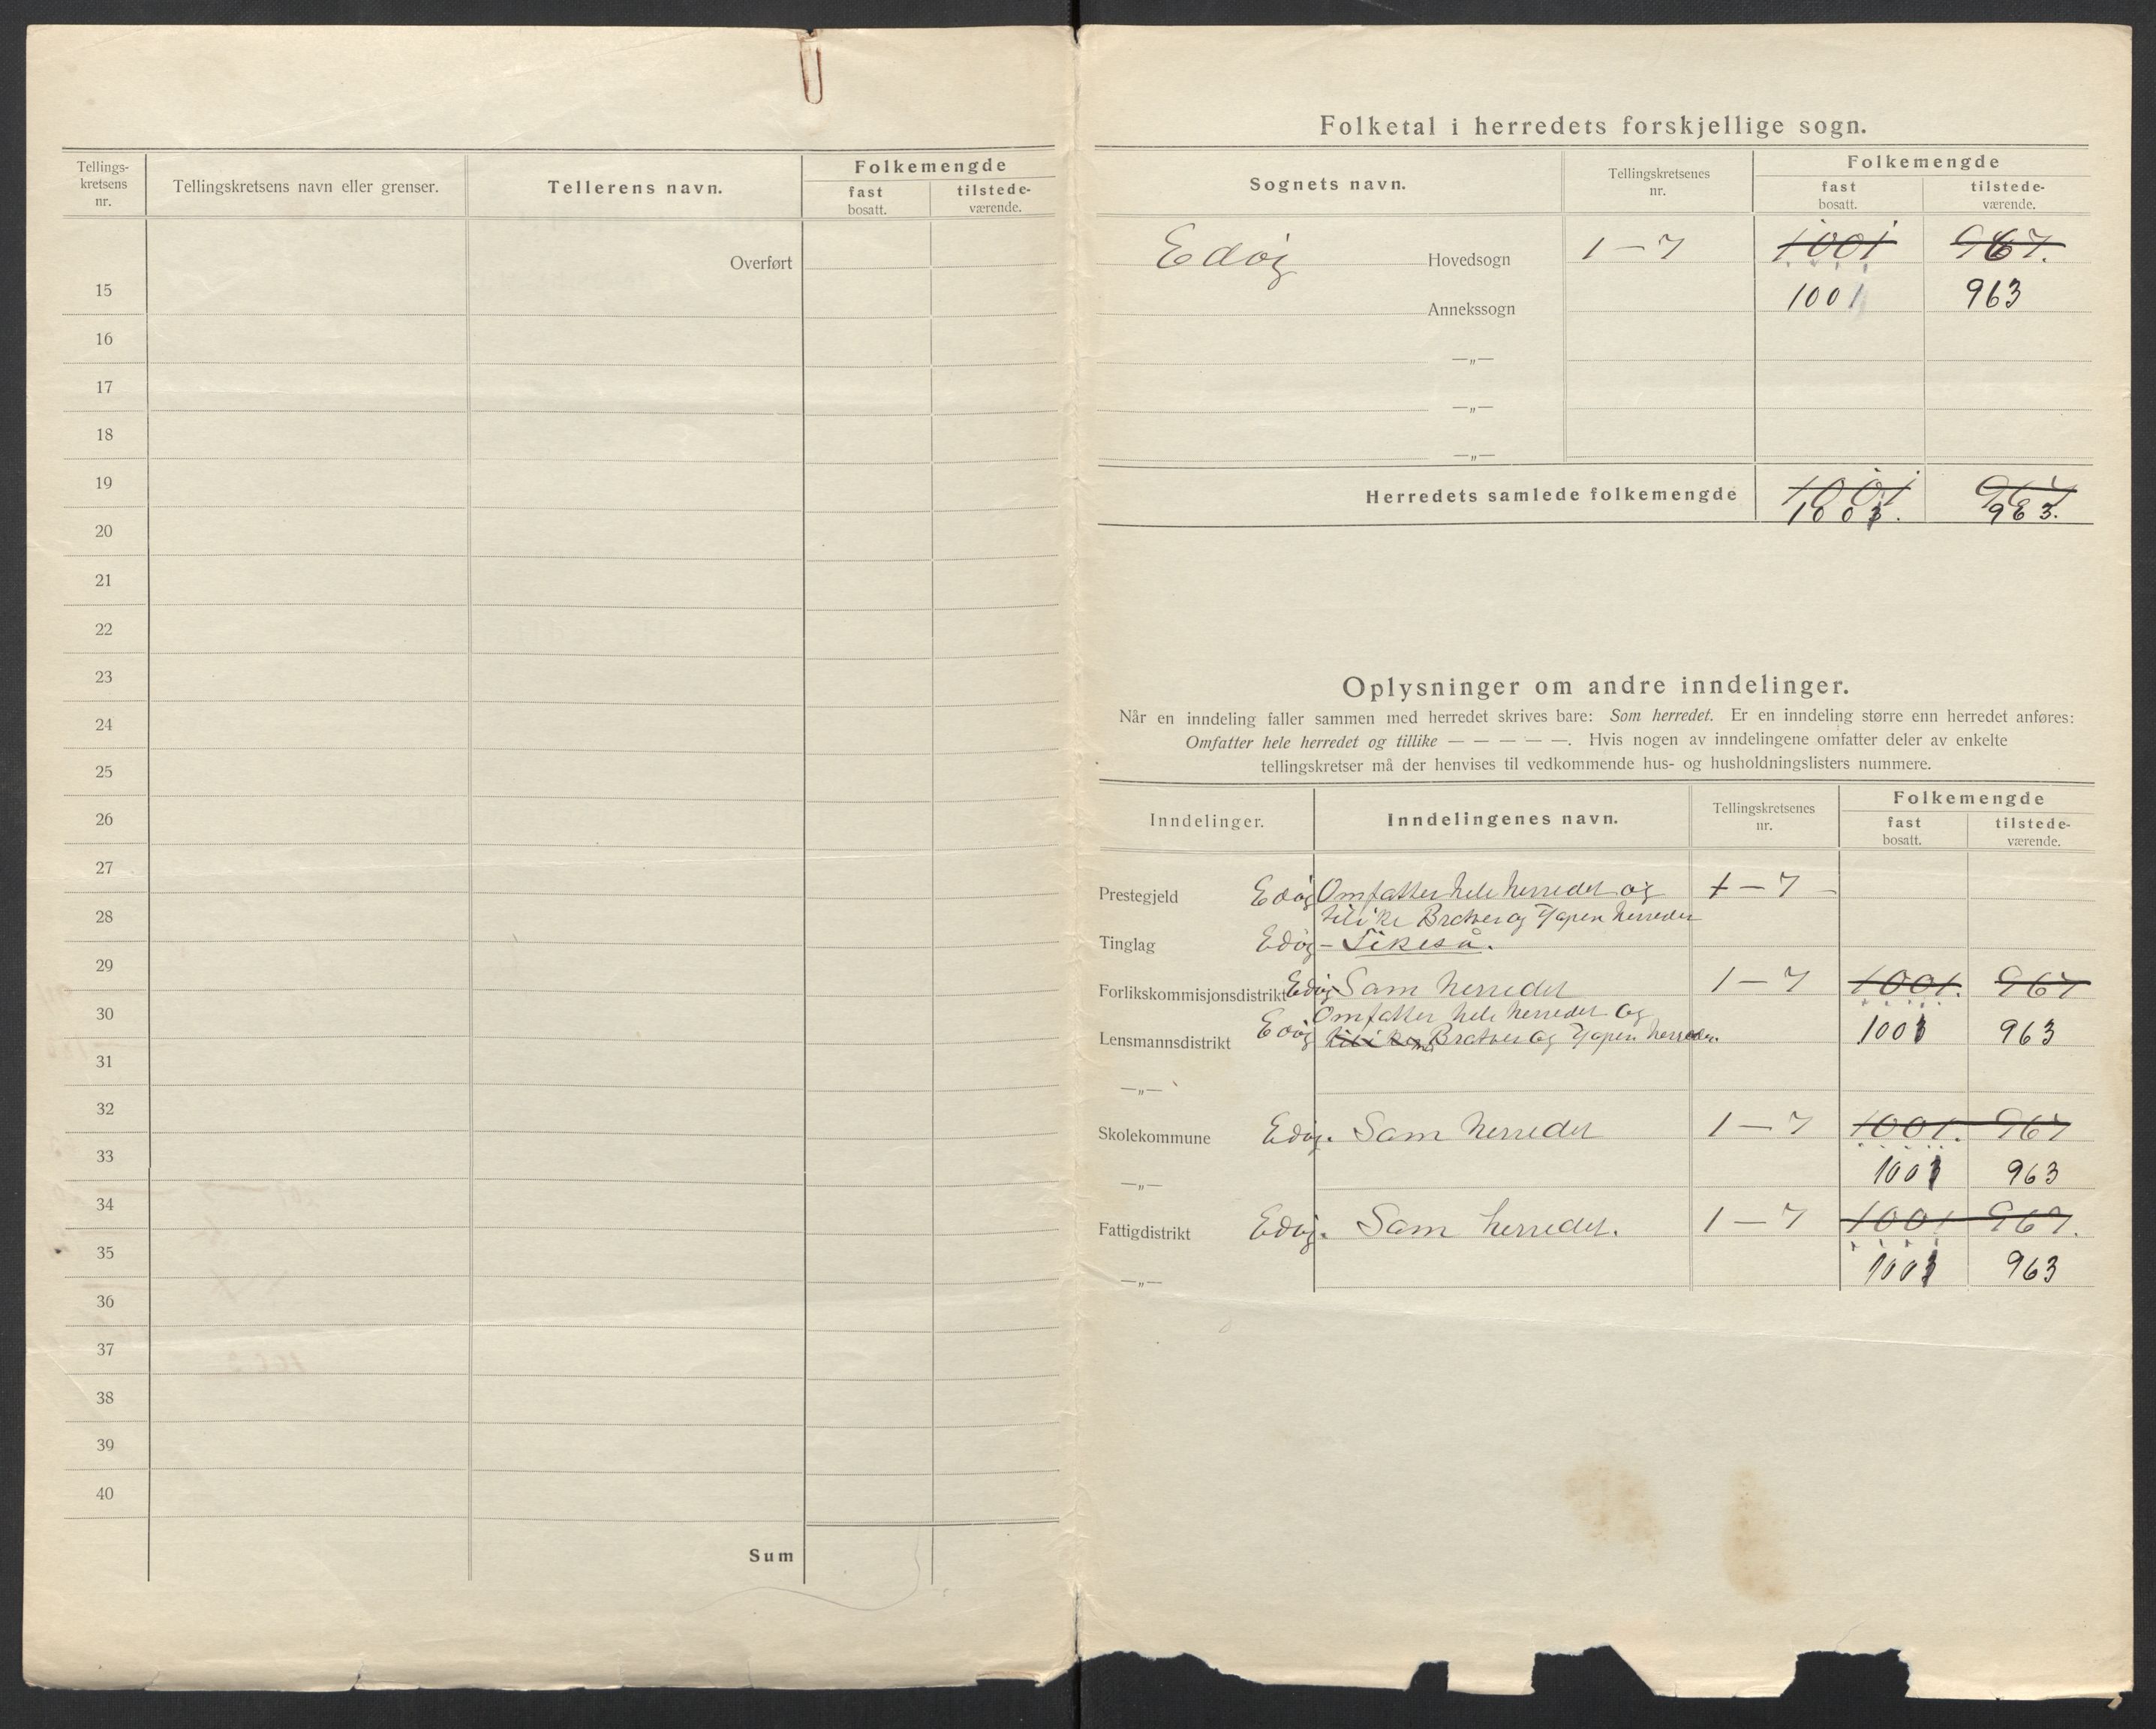 Tellings-
kretsens
nr.
Tellingskretsens navn eller grenser.
Tellerens navn.
Folkemengde
fast
bosatt.
tilstede-
værende.
Overført
15
16
17
18
19
20
21
22
23
24
25
26
27
28
29
30
31
32
33
34
35
36
37
38
39
40
Sum
Folketal i herredets forskjellige sogn.
Sognets navn.
Tellingskretsenes
nr.
Folkemengde
fast
bosatt.
tilstede-
værende.
Edøy Hovedsogn 1 — 7 1001 967.
Annekssogn 1001 963
—„—
—„—
—„—
Herredets samlede folkemengde 1001 967
963.
Oplysninger om andre inndelinger.
Når en inndeling faller sammen med herredet skrives bare: Som herredet. Er en inndeling større enn herredet anføres:
Omfatter hele herredet og tillike — — — — —. Hvis nogen av inndelingene omfatter deler av enkelte
tellingskretser må der henvises til vedkommende hus- og husholdningslisters nummere.
Inndelinger.
Inndelingenes navn.
Tellingskretsenes
nr.
Folkemengde
fast
bosatt.
tilstede-
værende.
Prestegjeld Edøy Omfatter hele herredet og 1 — 7 —
tilike Brattvær og Hopen herreder
Tinglag Edøy - Likeså.
Forlikskommisjonsdistrikt Edøy Som herredet 1 — 7 1001. 967
Omfatter hele herredet og
Lensmannsdistrikt Edøy Brattvær og Hopen herreder. 1001 963
—„—
Skolekommune Edøy. Som herredet 1 — 7 1001. 967
—„— 1001 963
Fattigdistrikt Edøy. Som herredet. 1 — 7 1001 967.
—„— 1001 963